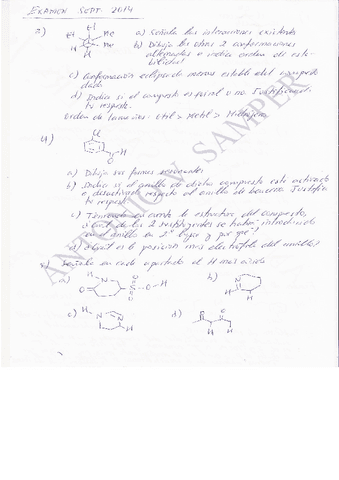 EXAMEN SEPT. 2014
2) a) Señala las interacciones existentes
Et Et Me
H Me
b) Dibuja las otras 2 conformaciones
alternadas e indica orden de esta-
bilidad
c) Conformación eclipsada menos estable del compuesto
dado
d) Indica si el compuesto es quiral o no. Justifica
tu respuesta.
Orden de tamaños: Etil > Metil > Hidrógeno
4) Cl
O H
a) Dibuja sus formas resonantes
b) Indica si el anillo de dicho compuesto está activado
o desactivado respecto al anillo de benceno. Justifica
tu respuesta
c) Teniendo en cuenta la estructura del compuesto,
¿cuál de los 2 sustituyentes se habrá introducido
en el anillo en 2º lugar y por qué?
d) ¿Cuál es la posición más electrófila del anillo?
Señala en cada apartado el H más ácido
a) H N O S O O H
b) N H
c) H N N H
d) H H
ANTONIO W SAMPER